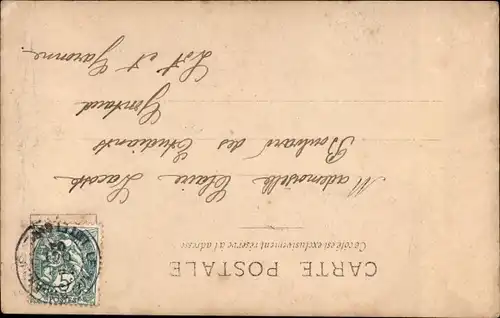 CARTE POSTALE
Ce côté est exclusivement réservé à l'adresse
Mademoiselle Claire Lacoste
Boulevard des Étudiants
Gontaud
Lot et Garonne.